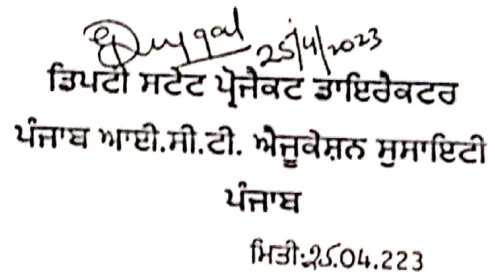 25/4/2023
ਡਿਪਟੀ ਸਟੇਟ ਪ੍ਰੋਜੈਕਟ ਡਾਇਰੈਕਟਰ
ਪੰਜਾਬ ਆਈ.ਸੀ.ਟੀ. ਐਜੂਕੇਸ਼ਨ ਸੁਸਾਇਟੀ
ਪੰਜਾਬ
ਮਿਤੀ:25.04.223